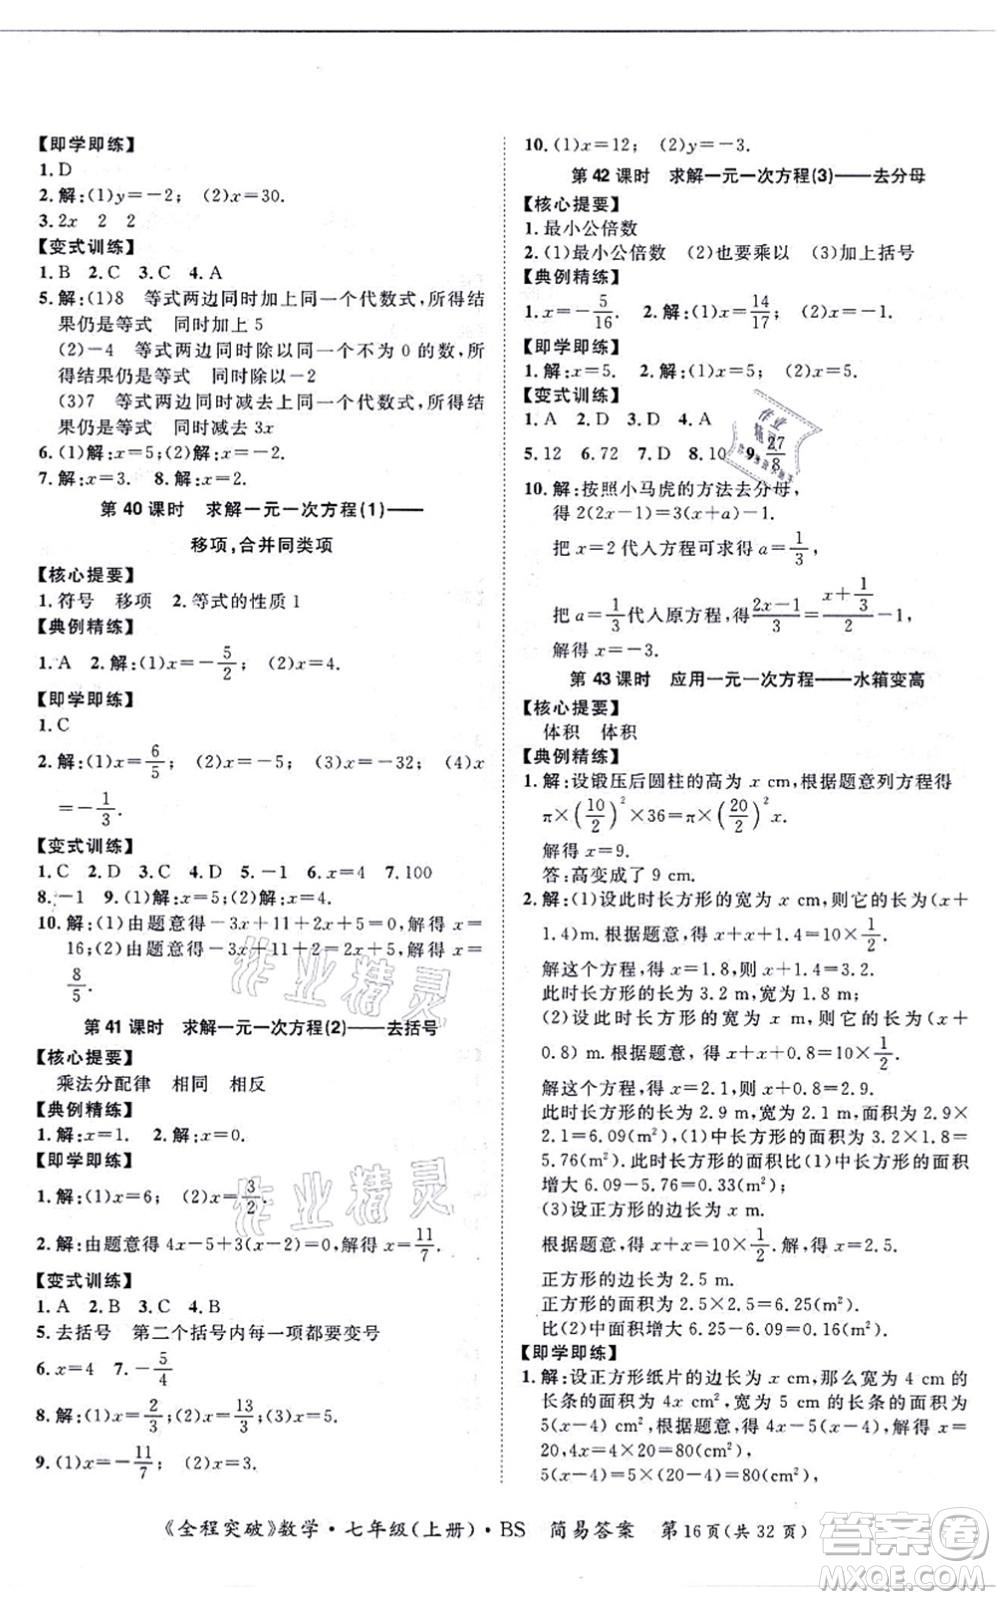 【即学即练】
1. D
2. 解:(1)y=-2; (2)x=30.
3. 2x 2 2
【变式训练】
1. B 2. C 3. C 4. A
5. 解:(1)8 等式两边同时加上同一个代数式,所得结
果仍是等式 同时加上 5
(2)-4 等式两边同时除以同一个不为 0 的数,所
得结果仍是等式 同时除以-2
(3)7 等式两边同时减去同一个代数式,所得结
果仍是等式 同时减去 3x
6. (1)x=5;(2)x=-2.
7. 解:x=3. 8. 解:x=2.
第 40 课时 求解一元一次方程(1)——
移项,合并同类项
【核心提要】
1. 符号 移项 2. 等式的性质 1
【典例精练】
1. A 2. 解:(1)x=-5/2; (2)x=4.
【即学即练】
1. C
2. 解:(1)x=6/5; (2)x=-5; (3)x=-32; (4)x
=-1/3.
【变式训练】
1. C 2. D 3. C 4. D 5. -1 6. 4 7. 100
8. -1 9. (1)解:x=5;(2)解:x=1.
10. 解:(1)由题意得-3x+11+2x+5=0,解得 x=
16;(2)由题意得-3x+11=2x+5-2,解得 x=
8/5.
第 41 课时 求解一元一次方程(2)——去括号
【核心提要】
乘法分配律 相同 相反
【典例精练】
1. 解:x=1. 2. 解:x=0.
【即学即练】
1. 解:(1)x=6; (2)x=3/2.
2. 解:由题意得 4x-5+3(x-2)=0,解得 x=11/7.
【变式训练】
1. A 2. B 3. C 4. B
5. 去括号 第二个括号内每一项都要变号
6. x=4 7. -5/4
8. 解:(1)x=2/3; (2)x=13/3; (3)x=5.
9. (1)x=-11/7; (2)x=3.
10. (1)x=12; (2)y=-3.
第 42 课时 求解一元一次方程(3)——去分母
【核心提要】
1. 最小公倍数
2. (1)最小公倍数 (2)也要乘以 (3)加上括号
【典例精练】
1. x=-5/16. 2. 解:(1)x=14/17; (2)x=-1.
【即学即练】
1. 解:x=5. 2. 解:(1)x=5; (2)x=3.
【变式训练】
1. A 2. D 3. D 4. A
5. 12 6. 72 7. D 8. 10 9. 27/8
10. 解:按照小马虎的方法去分母,
得 2(2x-1)=3(x+a)-1,
把 x=2 代入方程可求得 a=1/3,
把 a=1/3代入原方程,得(2x-1)/3=(x+1/3)/2-1,
解得 x=-3.
第 43 课时 应用一元一次方程——水箱变高
【核心提要】
体积 体积
【典例精练】
1. 解:设锻压后圆柱的高为 x cm,根据题意列方程得
π×(10/2)²×36=π×(20/2)²x,
解得 x=9;
答:高变成了 9 cm.
2. 解:(1)设此时长方形的宽为 x m,则它的长为(x+
1.4)m. 根据题意,得 x+x+1.4=10×1/2.
解这个方程,得 x=1.8,则 x+1.4=3.2.
此时长方形的长为 3.2 m,宽为 1.8 m;
(2)设此时长方形的宽为 x m,则它的长为(x+
0.8) m. 根据题意,得 x+x+0.8=10×1/2.
解这个方程,得 x=2.1,则 x+0.8=2.9.
此时长方形的长为 2.9 m,宽为 2.1 m,面积为 2.9×
2.1=6.09(m²),(1)中长方形的面积为 3.2×1.8=
5.76(m²). 此时长方形的面积比(1)中长方形的面积
增大 6.09-5.76=0.33(m²);
(3)设正方形的边长为 x m.
根据题意,得 x+x=10×1/2. 解,得 x=2.5.
正方形的边长为 2.5 m,
正方形的面积为 2.5×2.5=6.25(m²),
比(2)中面积增大 6.25-6.09=0.16(m²).
【即学即练】
1. 解:设正方形纸片的边长为 x cm,那么宽为 4 cm 的
长条的面积为 4x cm²,宽为 5 cm 的长条的面积为
5(x-4) cm²,根据题意,得 4x=5(x-4). 解得 x=
20,4x=4×20=80(cm²),
5(x-4)=5×(20-4)=80(cm²);
《全程突破》数学·七年级(上册)·BS 简易答案 第16页(共 32 页)
作业精灵
作业精灵
答案圈
MXQE.COM